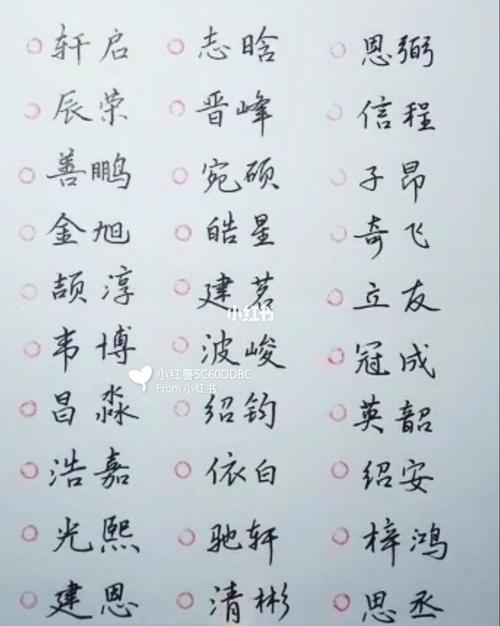 轩启 志晗 恩弼
辰荣 晋峰 信程
善鹏 宛硕 子昂
金旭 皓星 奇飞
颉淳 建茗 立友
小红书
韦博 波峻 冠成
小红薯5C60DDBC
From 小红书
昌淼 绍钧 英韶
浩嘉 依白 绍安
光熙 驰轩 梓鸿
建恩 清彬 思丞